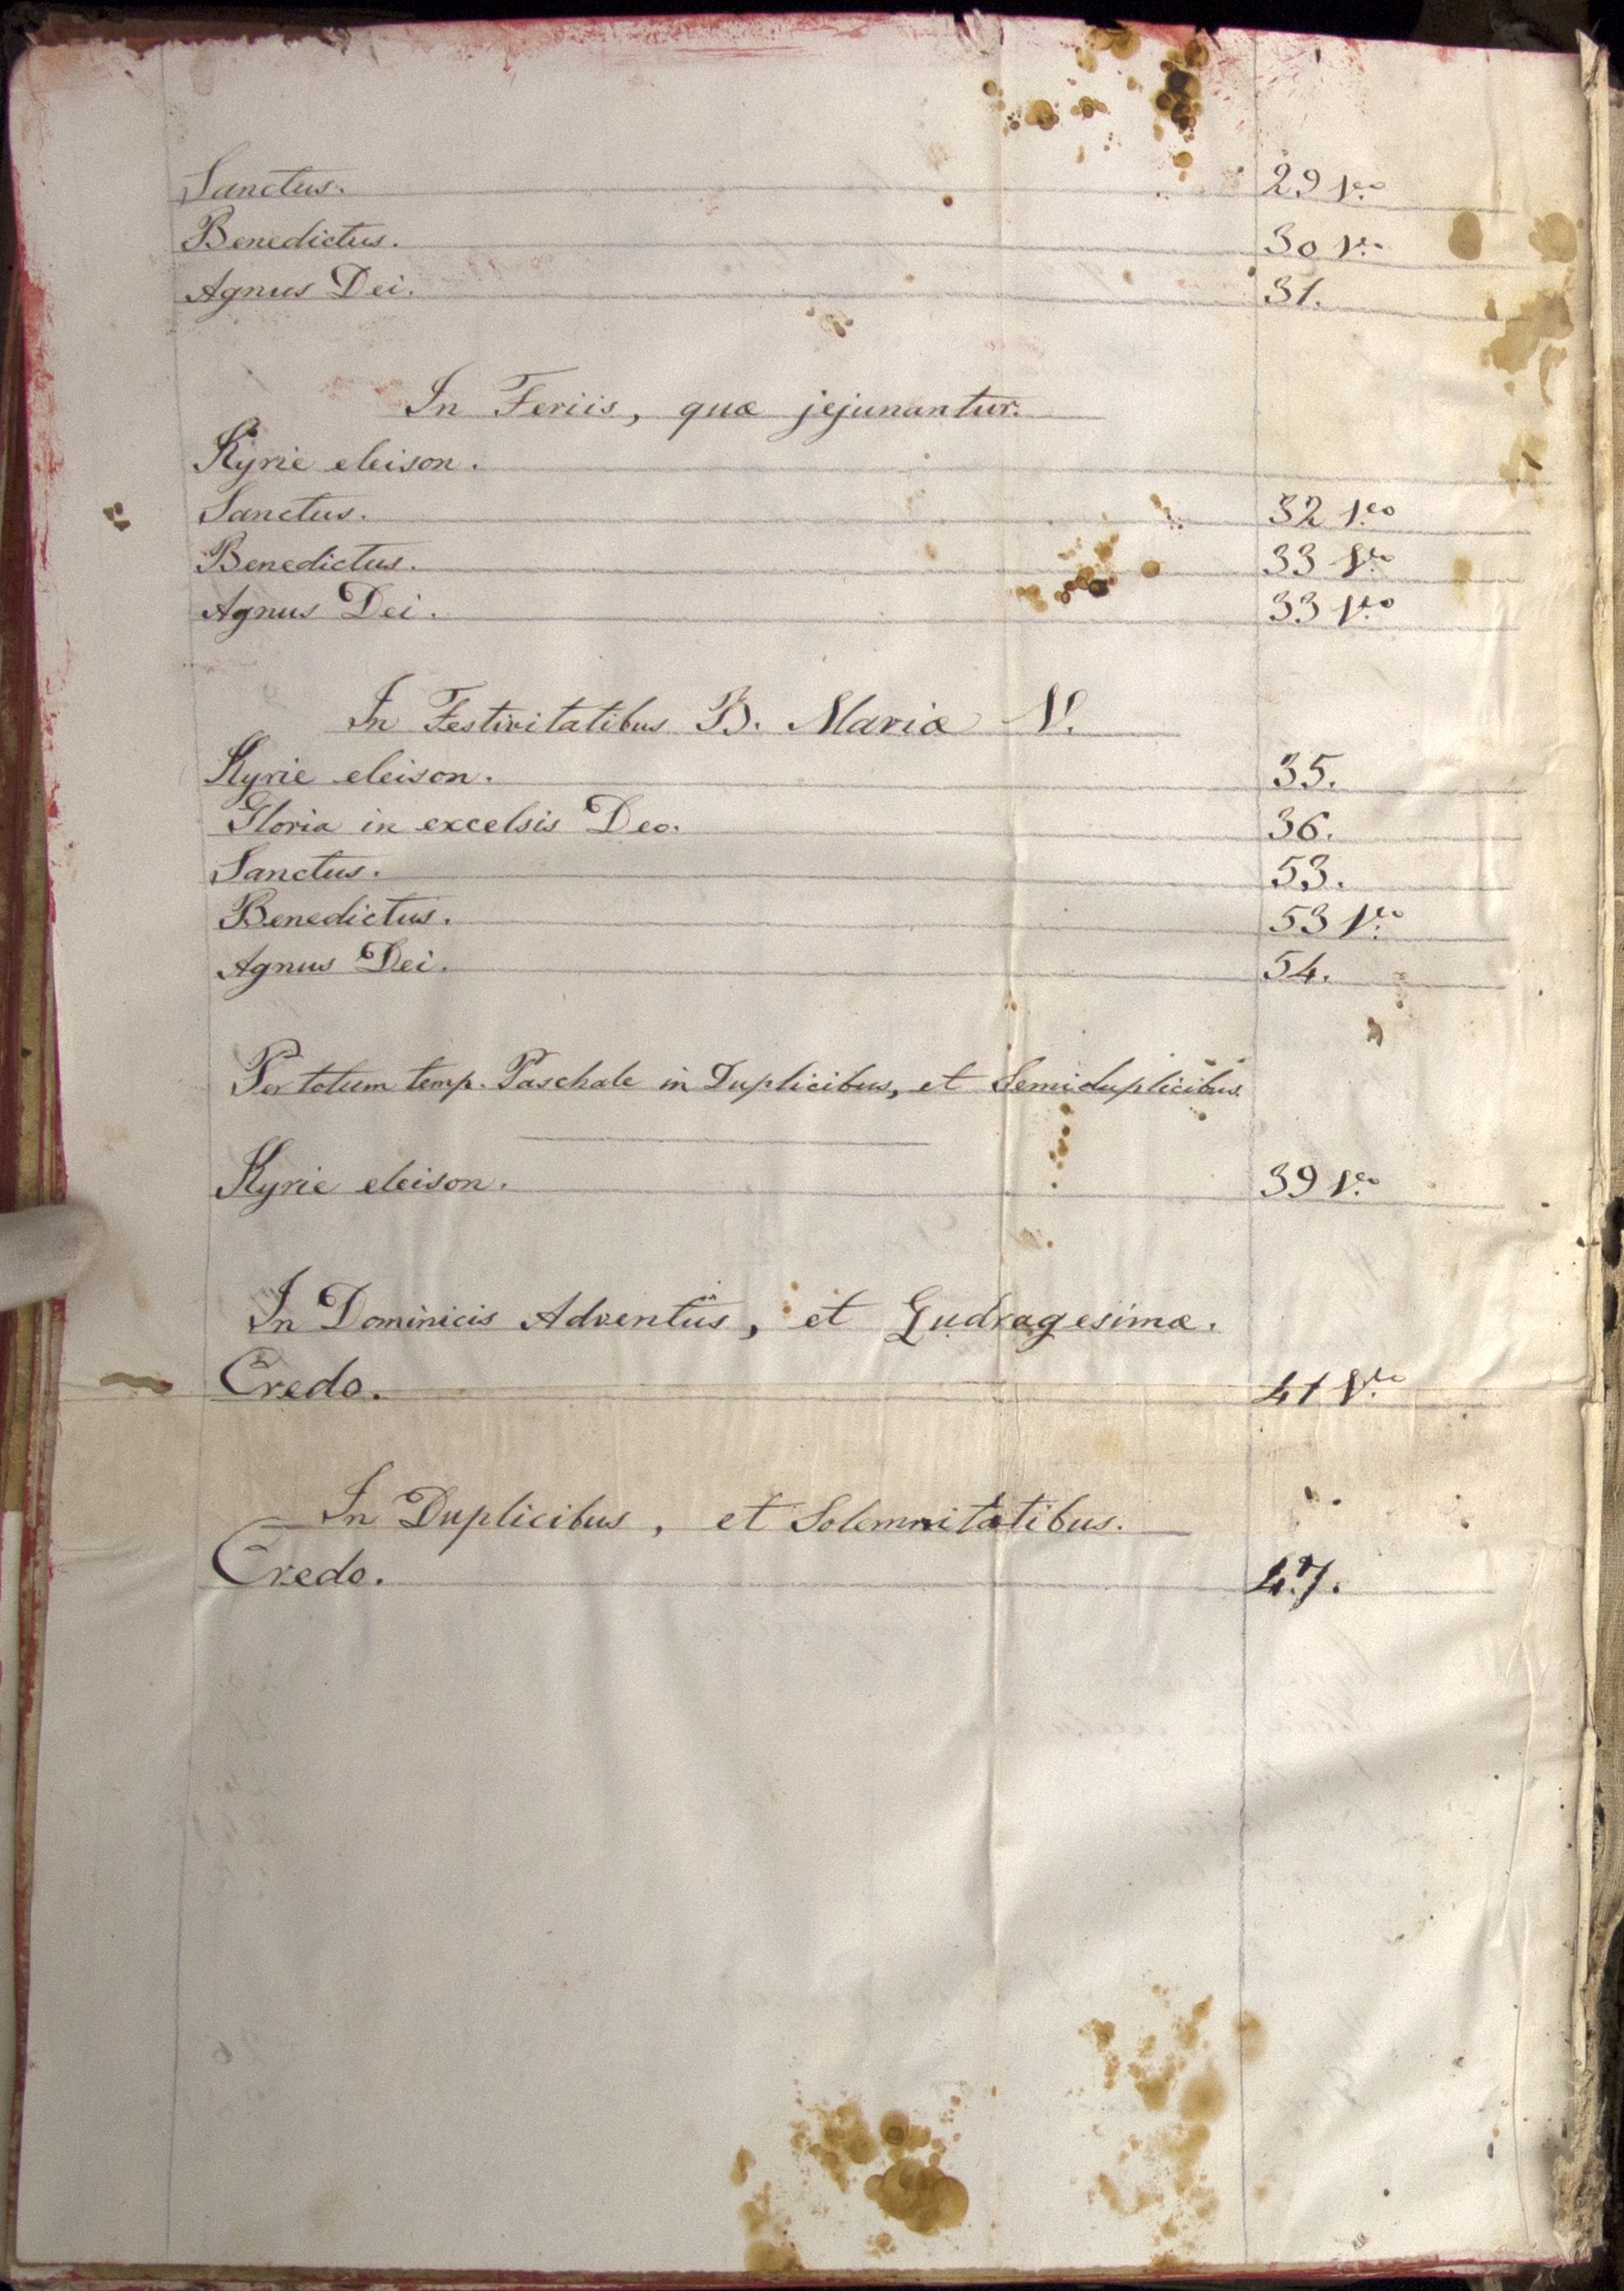 Sanctus. 29 V.to
Benedictus. 30 V.to
Agnus Dei. 31.
In Feriis, quæ jejunantur.
Kyrie eleison.
Sanctus. 32 V.to
Benedictus. 33 V.to
Agnus Dei. 33 V.to
In Festivitatibus B. Mariæ V.
Kyrie eleison. 35.
Gloria in excelsis Deo. 36.
Sanctus. 53.
Benedictus. 53 V.to
Agnus Dei. 54.
Per totum temp. Paschale in Duplicibus, et Semiduplicibus.
Kyrie eleison. 39 V.to
In Dominicis Adventüs, et Qudragesimæ.
Credo. 41 V.to
In Duplicibus, et Solemnitatibus.
Credo. 47.